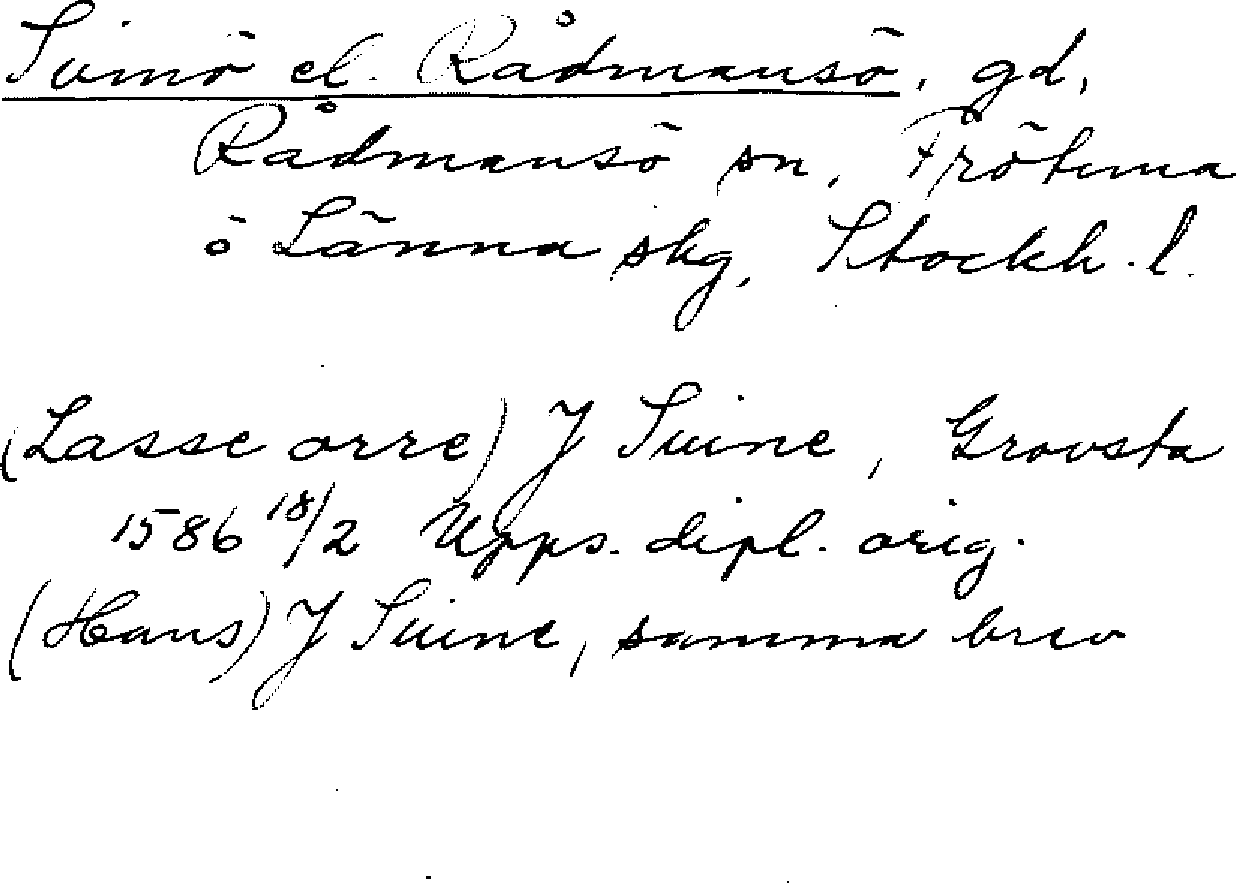 Svinö el. Rådmansö, gd,
Rådmansö sn, Frötuna
o Länna skg, Stockh. l.
(Lasse orre) J Suine, Grovsta
1586 18/2 Upps. dipl. orig.
(Hans) J Suine, samma brev